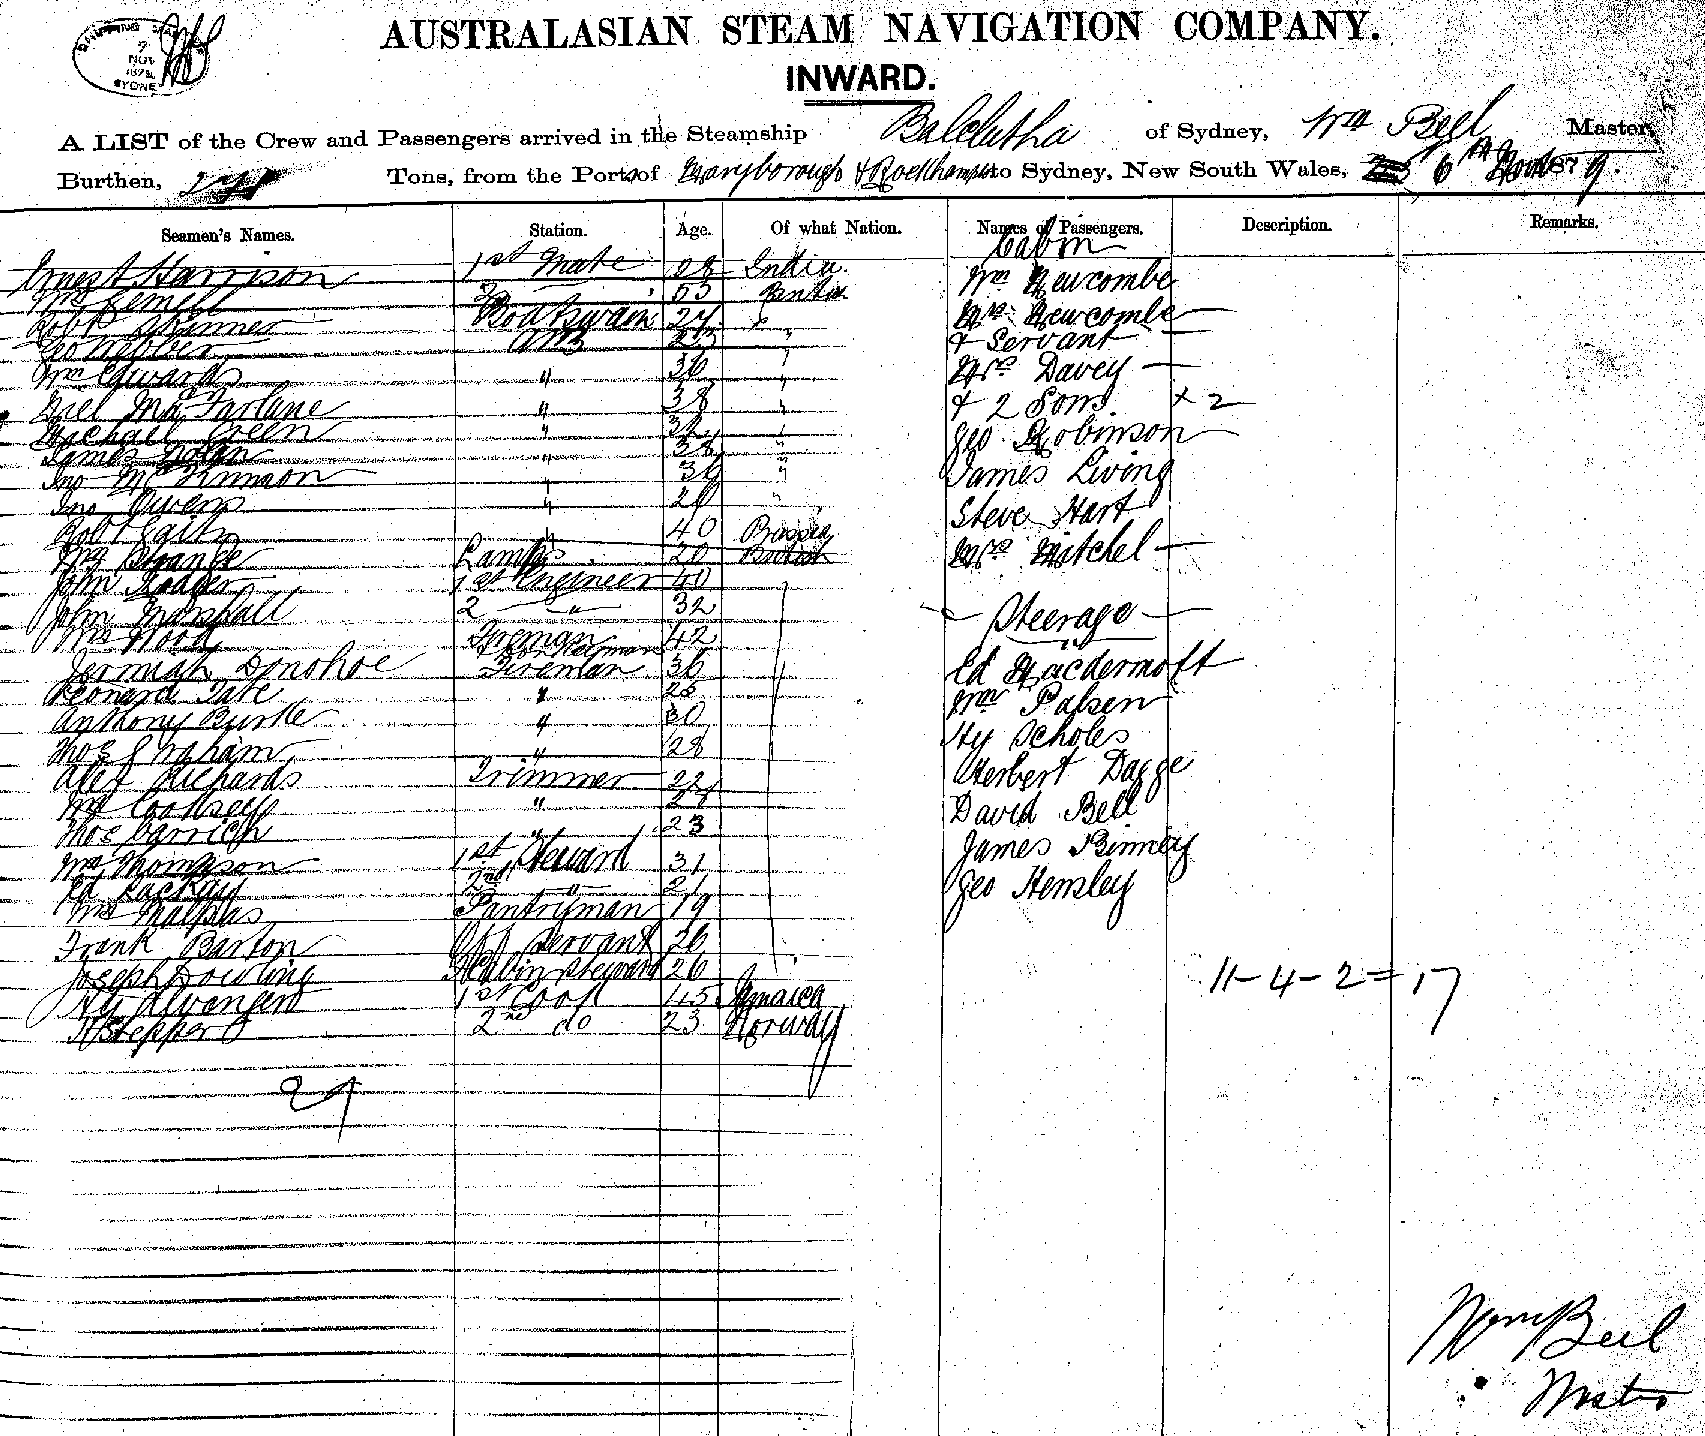 SHIPPING
7
NOV
SYDNEY
AUSTRALASIAN STEAM NAVIGATION COMPANY.
INWARD.
A LIST of the Crew and Passengers arrived in the Steamship Balclutha of Sydney, Wm Beel Master,
Burthen, Tons, from the Ports of Maryborough & Rockhampton to Sydney, New South Wales, 6th Novr 1879.
Seamen's Names. Station. Age. Of what Nation. Names of Passengers. Description. Remarks.
Cabin
Ernest Harrison 1st Mate 28 India. Wm Newcombe
Wm Gemell 2 " British
Robt Skinner Boatswain 27 " Mrs Newcombe
Geo Webber AB 25 " & Servant
Wm Edwards " 36 " Mrs Davey
Mac Farlane " 38 " & 2 Sons. x 2
Michael Green " " Geo Robinson
James Nolan " 38 "
Jno McKinnon " 36 " James Living
Jno Owens " "
Steve Hart
Robt " 40
Wm Lamps 20 British Mrs Mitchel
John Rodger 1st Engineer 40
John Marshall 2 " 32 Steerage
Wm Wood Fireman 42
Jermiah Donohoe Fireman 36 Ed Macdermott
Leonard Tate " 25 Wm Palsen
Anthony Burke " 30 Hy Scholes
Thos Graham " 28
Alex Richards Trimmer 22 Herbert Dagge
Wm Cooksey " David Bell
Thos Carrich " 23
Wm Thompson 1st Steward 31 James Binney
Ed 2nd " 21 Geo Hemsley
Wm Malpas Pantryman 19
Frank Barton Servant 26
Joseph Dowling F Cabin Steward 26 11-4-2=17
1st Cook 45 Jamaica
H Stepper 2nd do 23 Norway
29
Wm Beel
Master